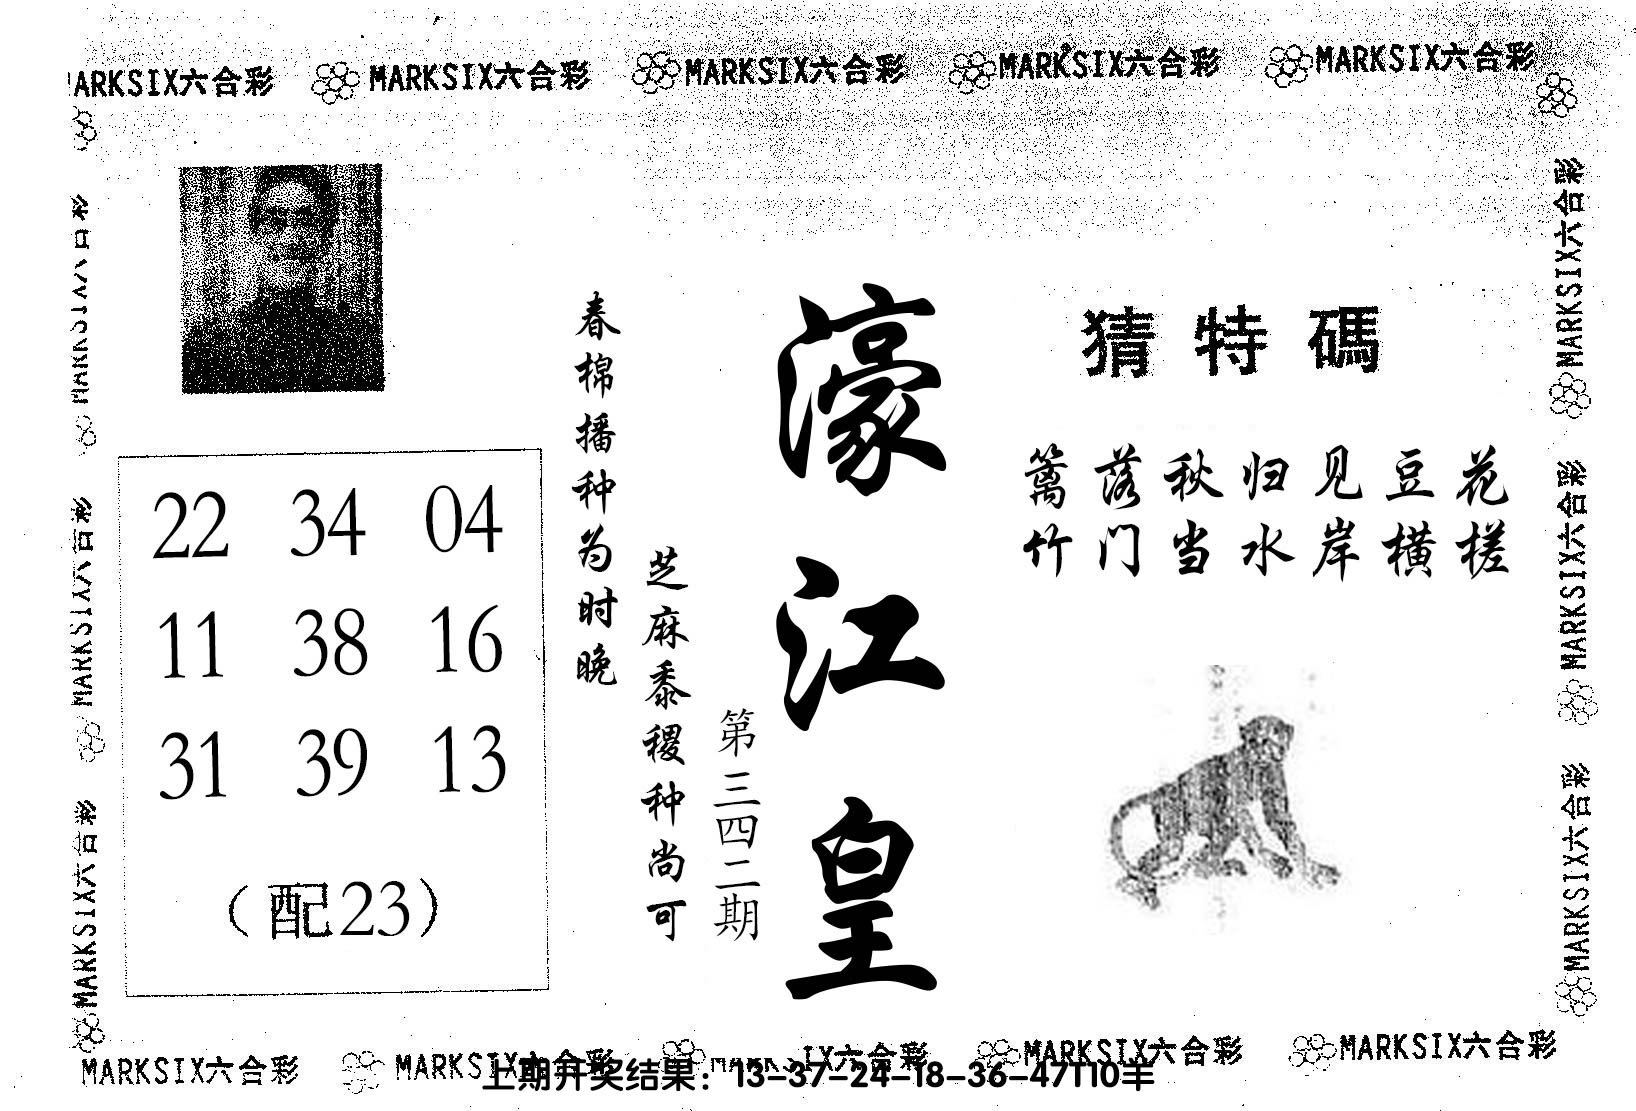 MARKSIX六合彩 MARKSIX六合彩 MARKSIX六合彩 MARKSIX六合彩 MARKSIX六合彩
猜特碼
篱落秋归见豆花
竹门当水岸横槎
濠江皇
第三四二期
春棉播种为时晚
芝麻黍稷种尚可
22 34 04
11 38 16
31 39 13
（配23）
MARKSIX六合彩
MARKSIX六合彩
MARKSIX六合彩
MARKSIX六合彩
MARKSIX六合彩
MARKSIX六合彩
MARKSIX六合彩 MARKSIX六合彩 MARKSIX六合彩 MARKSIX六合彩 MARKSIX六合彩
上期开奖结果：13-37-24-18-36-47T10羊